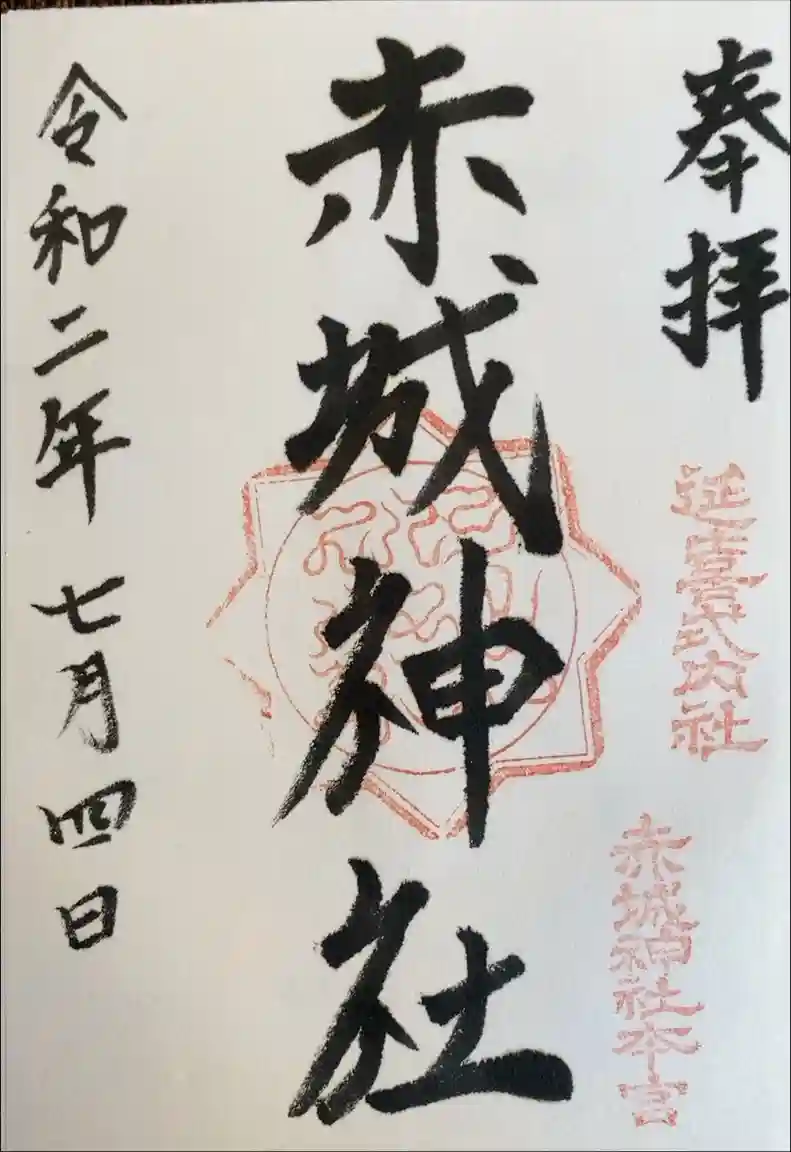 奉拝
延喜式内社
赤城神社本宮
赤城神社
令和二年七月四日